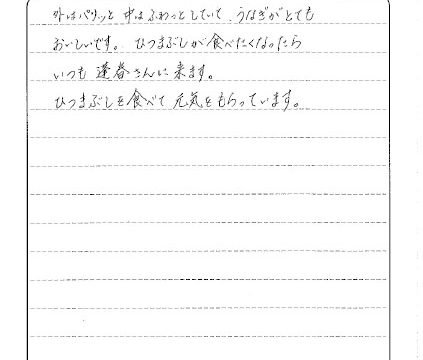 外はパリッと 中はふわっとしていて、うなぎがとても
おいしいです。ひつまぶしが食べたくなったら
いつも 蓬春さんに来ます。
ひつまぶしを食べて 元気をもらっています。